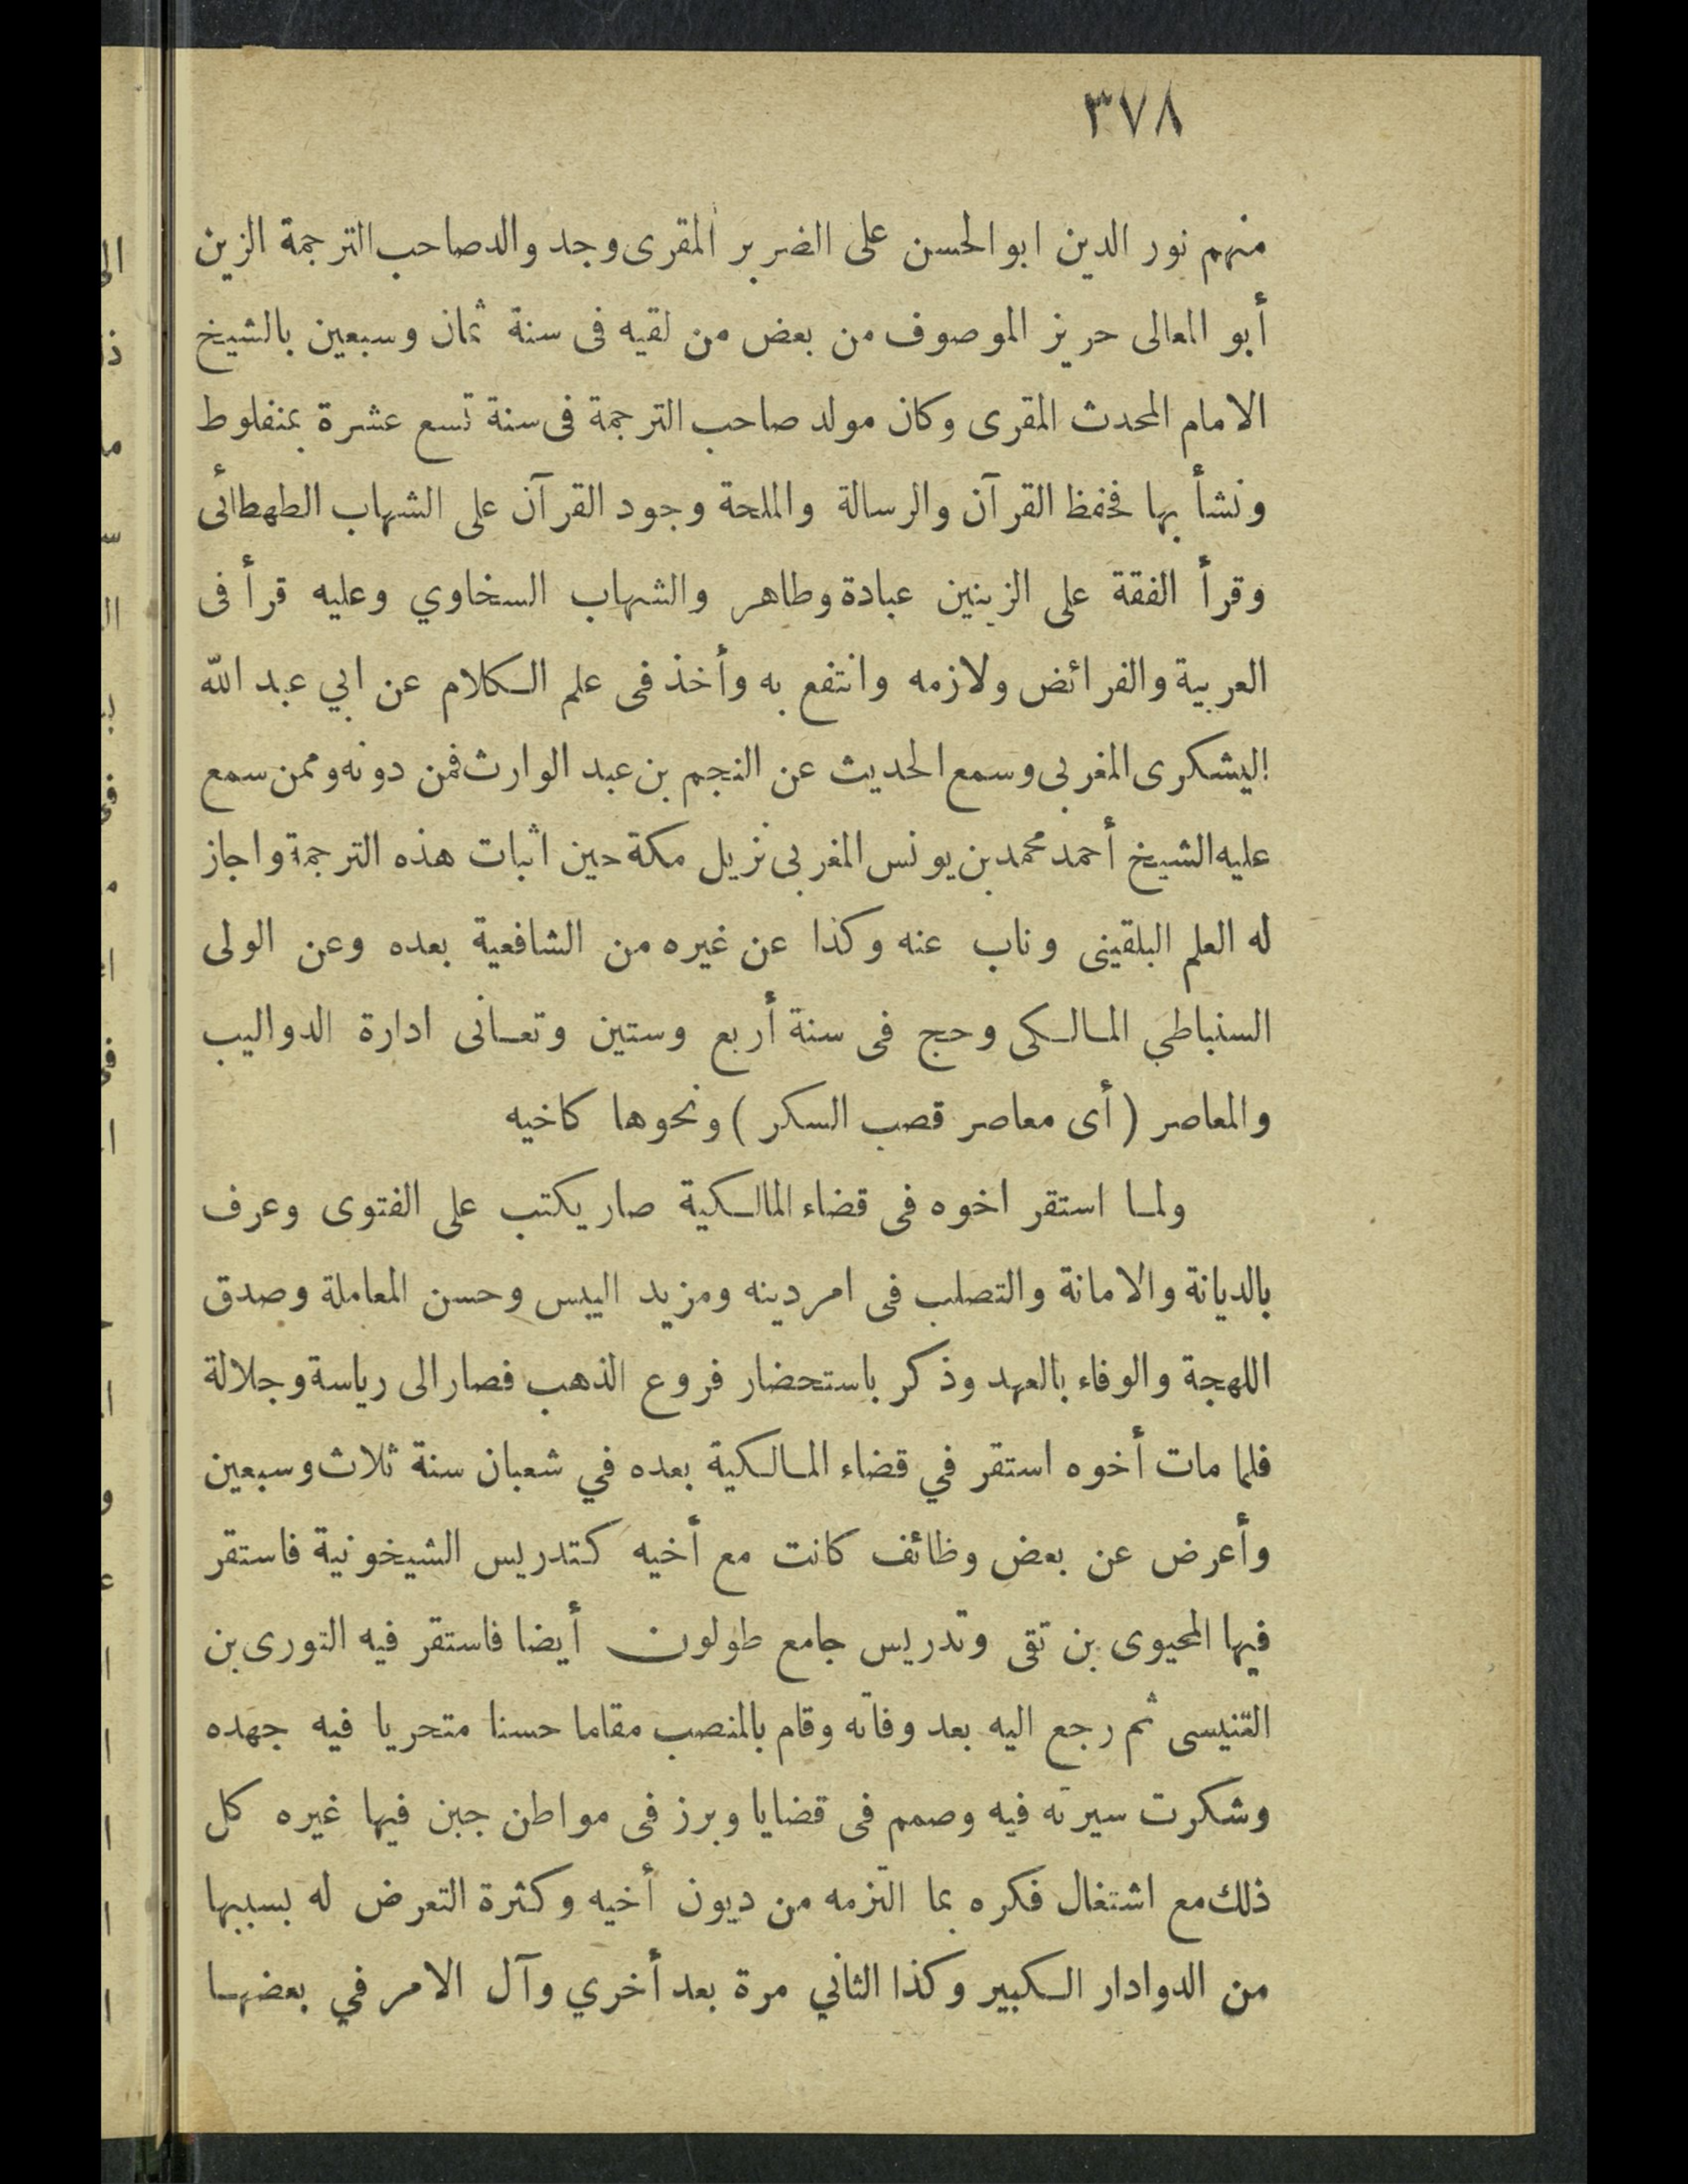 ٣٧٨
منهم نور الدين ابو الحسن على الضرير المقرى وجد والد صاحب الترجمة الزين
أبو المعالى حريز الموصوف من بعض من لقيه فى سنة ثمان وسبعين بالشيخ
الامام المحدث المقرى وكان مولد صاحب الترجمة فى سنة تسع عشرة بمنفلوط
ونشأ بها فحفظ القرآن والرسالة والملحة وجود القرآن على الشهاب الطهطائى
وقرأ الفقة على الزينين عبادة وطاهر والشهاب السخاوي وعليه قرأ فى
العربية والفرائض ولازمه وانتفع به وأخذ فى علم الكلام عن ابي عبد الله
اليشكرى المغربى وسمع الحديث عن النجم بن عبد الوارث فمن دونه وممن سمع
عليه الشيخ أحمد محمد بن يونس المغربى نزيل مكة حين اثبات هذه الترجمة واجاز
له العلم البلقينى وناب عنه وكذا عن غيره من الشافعية بعده وعن الولى
السنباطي المالكى وحج فى سنة أربع وستين وتعانى ادارة الدواليب
والمعاصر ( أى معاصر قصب السكر ) ونحوها كاخيه
ولما استقر اخوه فى قضاء المالكية صار يكتب على الفتوى وعرف
بالديانة والامانة والتصلب فى امر دينه ومزيد اليبس وحسن المعاملة وصدق
اللهجة والوفاء بالعهد وذكر باستحضار فروع الذهب فصار الى رياسة وجلالة
فلما مات أخوه استقر في قضاء المالكية بعده في شعبان سنة ثلاث وسبعين
وأعرض عن بعض وظائف كانت مع أخيه كتدريس الشيخونية فاستقر
فيها المحيوى بن تقى وتدريس جامع طولون أيضا فاستقر فيه النورى بن
التنيسى ثم رجع اليه بعد وفاته وقام بالمنصب مقاما حسنا متحريا فيه جهده
وشكرت سيرته فيه وصمم فى قضايا وبرز فى مواطن جبن فيها غيره كل
ذلك مع اشتغال فكره بما التزمه من ديون أخيه وكثرة التعرض له بسببها
من الدوادار الكبير وكذا الثاني مرة بعد أخري وآل الامر في بعضها